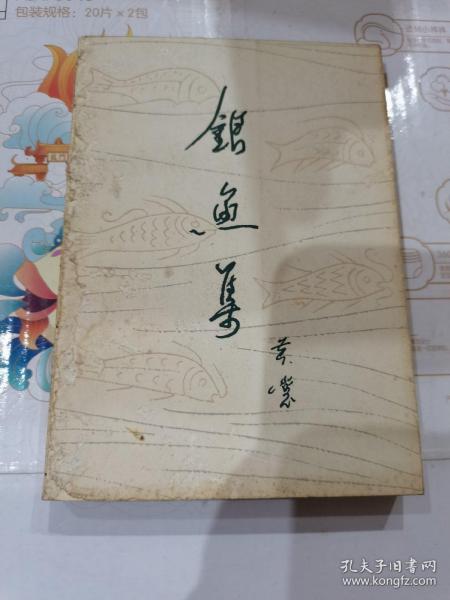 包装规格：20片×2包
银鱼集
黄裳
孔夫子旧书网
www.kongfz.com